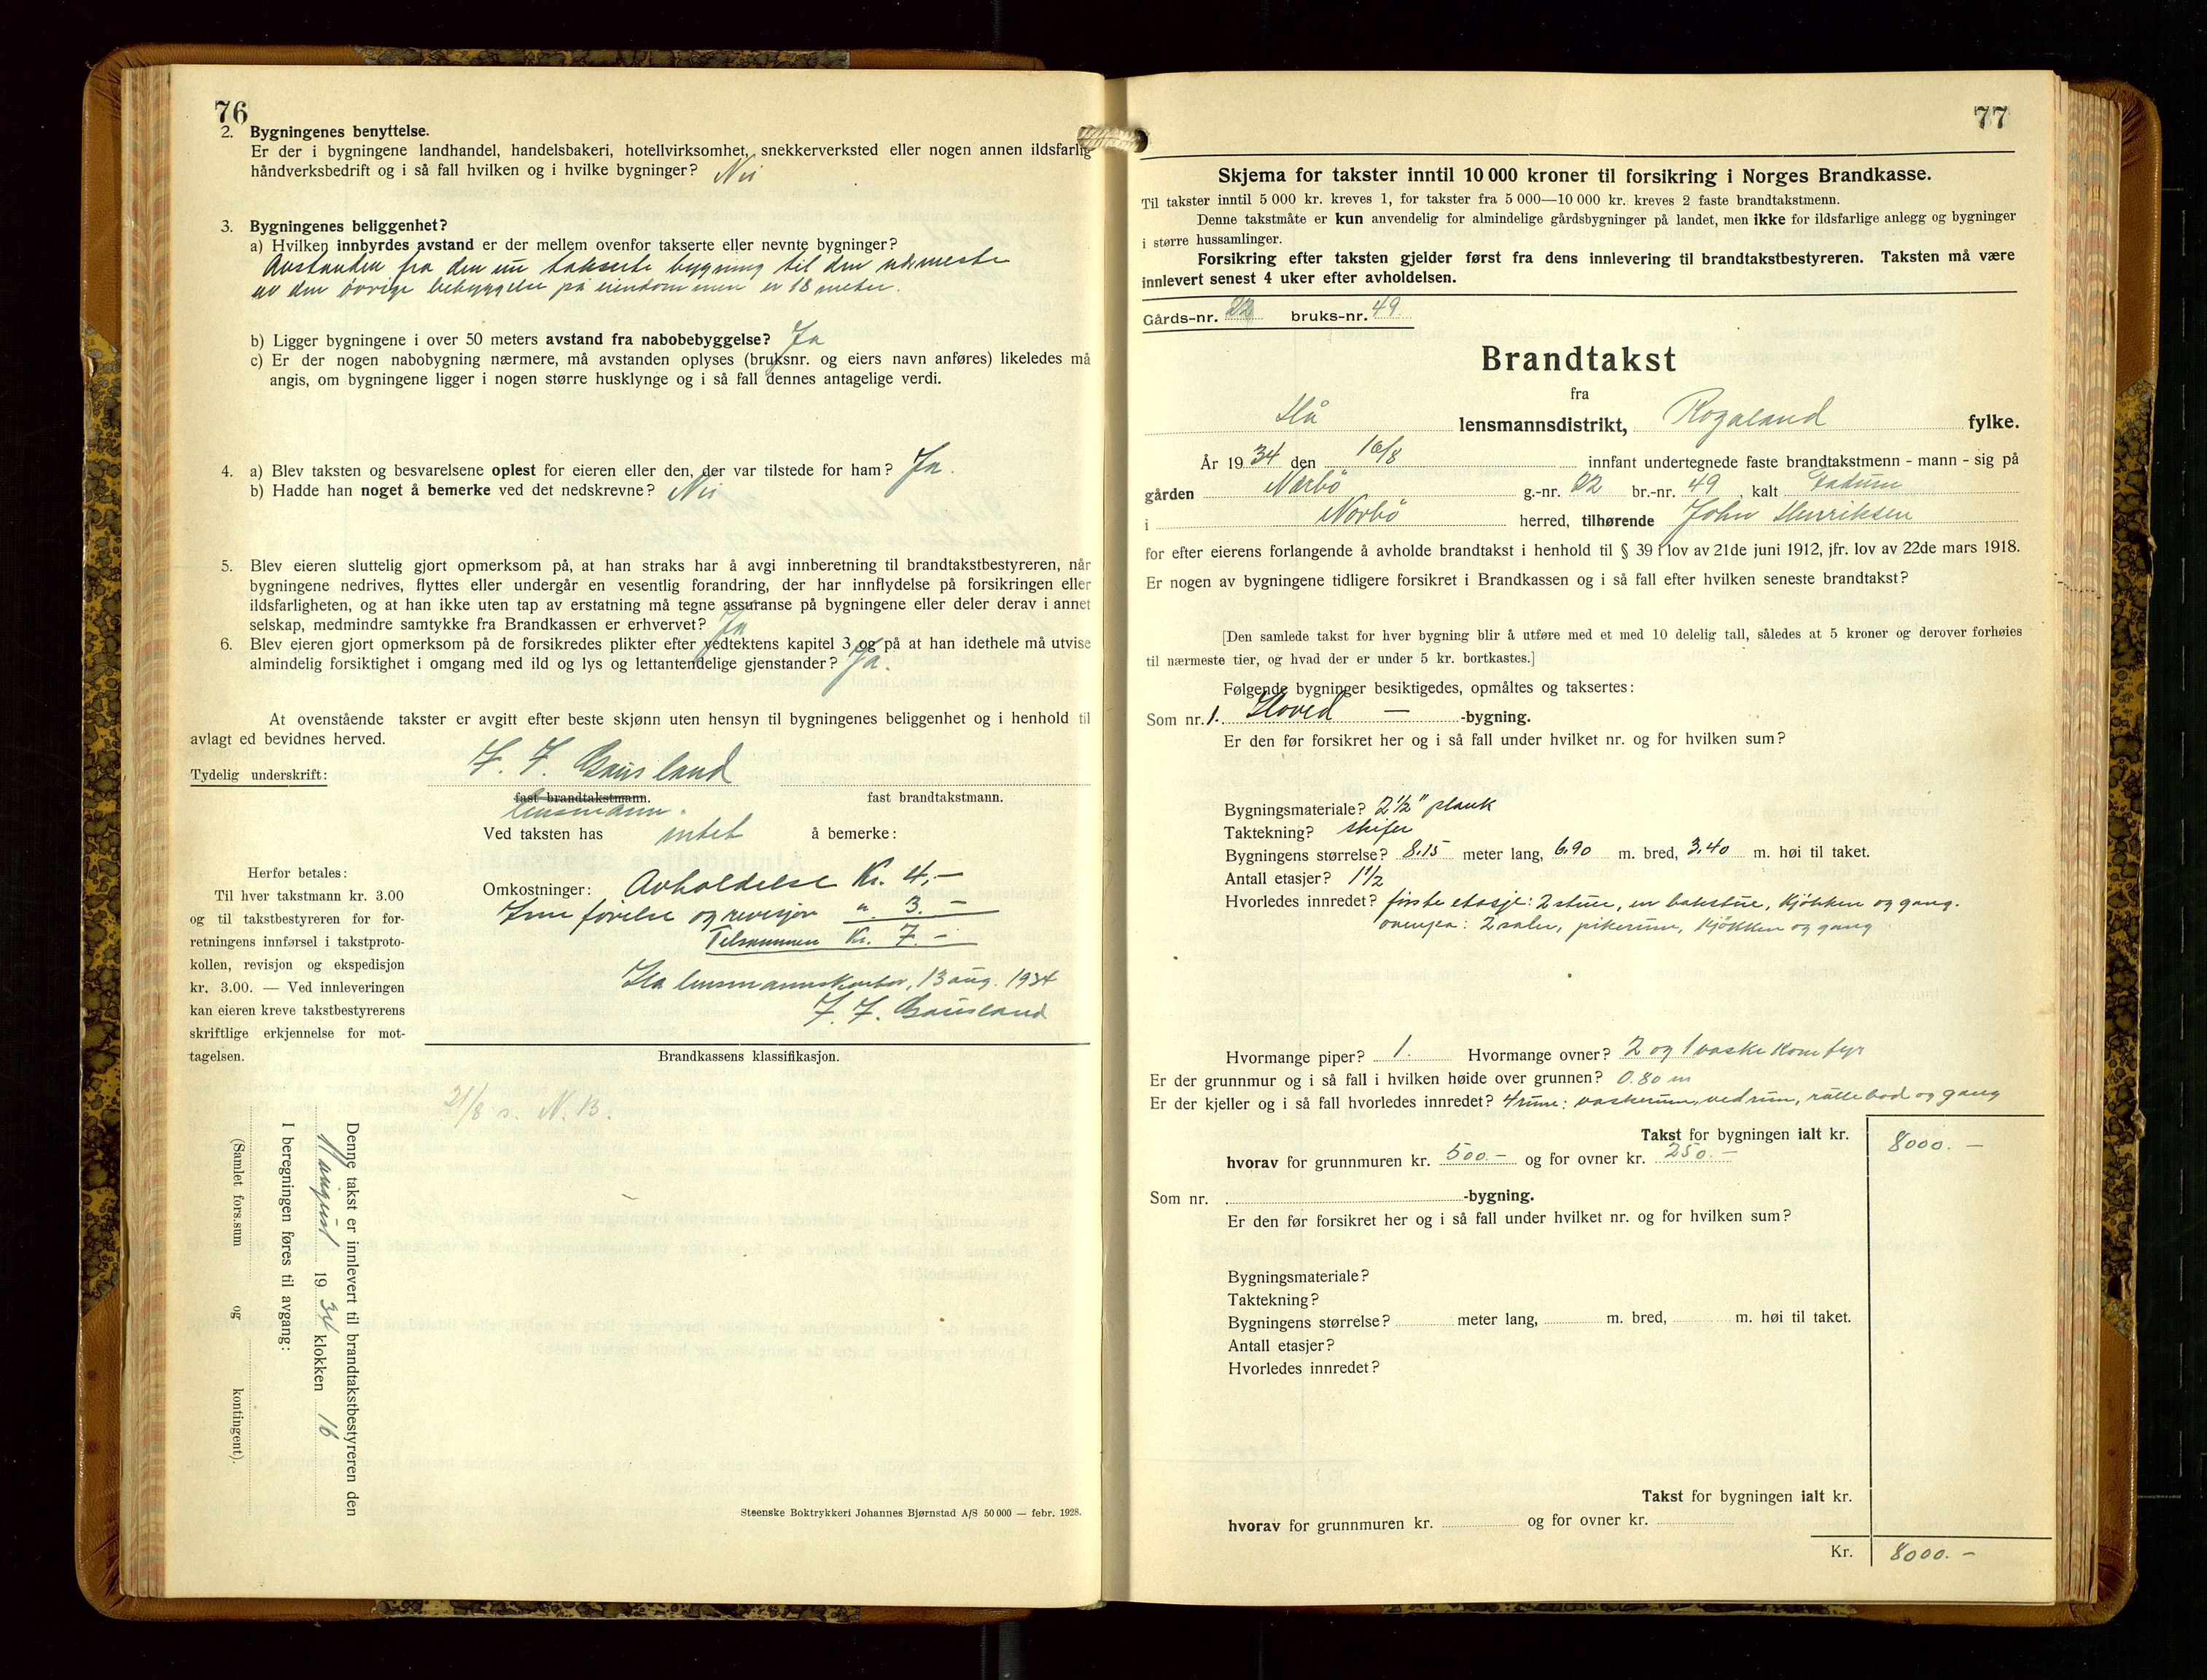 76
2. Bygningenes benyttelse.
Er der i bygningene landhandel, handelsbakeri, hotellvirksomhet, snekkerverksted eller nogen annen ildsfarlig
håndverksbedrift og i så fall hvilken og i hvilke bygninger? Nei
3. Bygningenes beliggenhet?
a) Hvilken innbyrdes avstand er der mellem ovenfor takserte eller nevnte bygninger?
Avstanden fra den nu takserte bygning til den nærmeste
av den øvrige bebyggelse på eiendommen er 18 meter.
b) Ligger bygningene i over 50 meters avstand fra nabobebyggelse? Ja
c) Er der nogen nabobygning nærmere, må avstanden oplyses (bruksnr. og eiers navn anføres) likeledes må
angis, om bygningene ligger i nogen større husklynge og i så fall dennes antagelige verdi.
4. a) Blev taksten og besvarelsene oplest for eieren eller den, der var tilstede for ham? Ja.
b) Hadde han noget å bemerke ved det nedskrevne? Nei
5. Blev eieren sluttelig gjort opmerksom på, at han straks har å avgi innberetning til brandtakstbestyreren, når
bygningene nedrives, flyttes eller undergår en vesentlig forandring, der har innflydelse på forsikringen eller
ildsfarligheten, og at han ikke uten tap av erstatning må tegne assuranse på bygningene eller deler derav i annet
selskap, medmindre samtykke fra Brandkassen er erhvervet? Ja
6. Blev eieren gjort opmerksom på de forsikredes plikter efter vedtektens kapitel 3 og på at han idethele må utvise
almindelig forsiktighet i omgang med ild og lys og lettantendelige gjenstander? Ja.
At ovenstående takster er avgitt efter beste skjønn uten hensyn til bygningenes beliggenhet og i henhold til
avlagt ed bevidnes herved.
Tydelig underskrift: F. F. Gausland
fast brandtakstmann. fast brandtakstmann.
lensmann.
Ved taksten has intet å bemerke:
Herfor betales:
Til hver takstmann kr. 3.00
og til takstbestyreren for for-
retningens innførsel i takstproto-
kollen, revisjon og ekspedisjon
kr. 3.00. — Ved innleveringen
kan eieren kreve takstbestyrerens
skriftlige erkjennelse for mot-
tagelsen.
Omkostninger: Avholdelse Kr. 4,-
Inn førelse og revisjon " 3.-
Tilsammen Kr. 7.-
Hå lensmannskontor, 13 aug. 1934
F. F. Gausland
Brandkassens klassifikasjon.
21/8 s. N. B.
Denne takst er innlevert til brandtakstbestyreren den
17 august 1934 klokken 16
I beregningen føres til avgang:
(Samlet fors.sum og kontingent).
Steenske Boktrykkeri Johannes Bjørnstad A/S 50 000 — febr. 1928.
77
Skjema for takster inntil 10 000 kroner til forsikring i Norges Brandkasse.
Til takster inntil 5 000 kr. kreves 1, for takster fra 5 000—10 000 kr. kreves 2 faste brandtakstmenn.
Denne takstmåte er kun anvendelig for almindelige gårdsbygninger på landet, men ikke for ildsfarlige anlegg og bygninger
i større hussamlinger.
Forsikring efter taksten gjelder først fra dens innlevering til brandtakstbestyreren. Taksten må være
innlevert senest 4 uker efter avholdelsen.
Gårds-nr. 22 bruks-nr. 49
Brandtakst
fra
Hå lensmannsdistrikt, Rogaland fylke.
År 1934 den 16/8 innfant undertegnede faste brandtakstmenn - mann - sig på
gården Nærbø g.-nr. 22 br.-nr. 49, kalt Fadum
i Nærbø herred, tilhørende John Henriksen
for efter eierens forlangende å avholde brandtakst i henhold til § 39 i lov av 21de juni 1912, jfr. lov av 22de mars 1918.
Er nogen av bygningene tidligere forsikret i Brandkassen og i så fall efter hvilken seneste brandtakst?
[Den samlede takst for hver bygning blir å utføre med et med 10 delelig tall, således at 5 kroner og derover forhøies
til nærmeste tier, og hvad der er under 5 kr. bortkastes.]
Følgende bygninger besiktigedes, opmåltes og taksertes:
Som nr. 1. Hoved — -bygning.
Er den før forsikret her og i så fall under hvilket nr. og for hvilken sum?
Bygningsmateriale? 2 1/2" plank
Taktekning? skifer
Bygningens størrelse? 8.15 meter lang, 6.90 m. bred, 3.40 m. høi til taket.
Antall etasjer? 1 1/2
Hvorledes innredet? første etasje: 2 stuer, en bakstue, kjøkken og gang.
ovenpa: 2 saler, pikerum, kjøkken og gang
Hvormange piper? 1. Hvormange ovner? 2 og 1 vaske komfyr
Er der grunnmur og i så fall i hvilken høide over grunnen? 0.80 m
Er der kjeller og i så fall hvorledes innredet? 4 rum: vaskerum, vedrum, rullebod og gang
Takst for bygningen ialt kr. 8000.-
hvorav for grunnmuren kr. 500.- og for ovner kr. 250.-
Som nr. -bygning.
Er den før forsikret her og i så fall under hvilket nr. og for hvilken sum?
Bygningsmateriale?
Taktekning?
Bygningens størrelse? meter lang, m. bred, m. høi til taket.
Antall etasjer?
Hvorledes innredet?
Takst for bygningen ialt kr.
hvorav for grunnmuren kr. og for ovner kr.
Kr. 8000.-